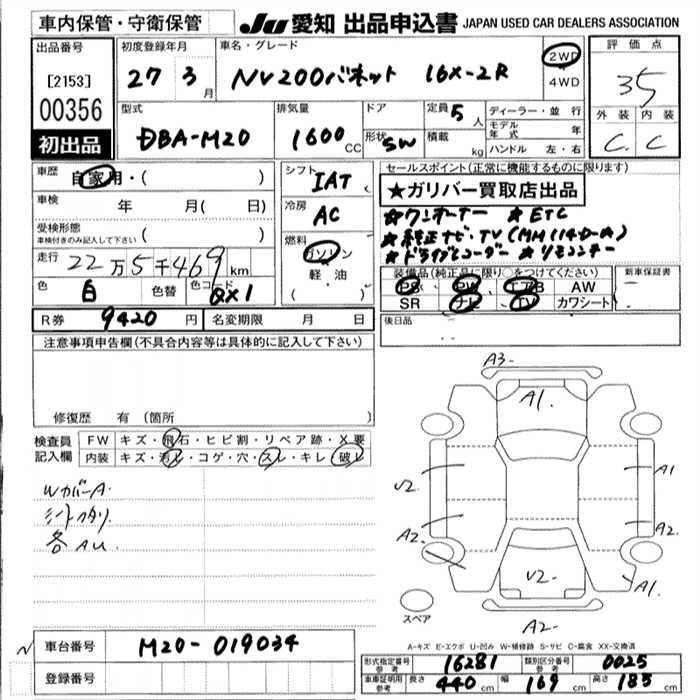 車内保管・守衛保管
JU 愛知 出品申込書 JAPAN USED CAR DEALERS ASSOCIATION
出品番号
[2153]
00356
初出品
初度登録年月
27 3月
車名・グレード
NV200バネット 16X-2R
2WD
4WD
評価点
3.5
外装 内装
C. C
型式
DBA-M20
排気量
1600cc
ドア
形状 SW
定員 5人
積載 kg
ディーラー・並行
モデル年式 年
ハンドル 左・右
車歴
自家用・( )
車検
年 月( 日)
受検形態
車検付きのみ記入して下さい
( )
走行 22万5千469km
色 白 色替 色コード QX1
シフト
IAT
冷房
AC
燃料
ガソリン
軽・油
( )
セールスポイント(正常に機能するものに限ります)
★ガリバー買取店出品
★ワンオーナー ★ETC
★純正ナビ・TV(MM114D-A)
★ドライブレコーダー ★リモコンキー
装備品(純正品に限り○をつけてください)
PS PW エアB AW
SR ナビ TV カワシート
新車保証書
R券 9420円 名変期限 月 日
後日品
注意事項申告欄(不具合内容等は具体的に記入して下さい)
修復歴 有(箇所 )
検査員記入欄
FW キズ・飛石・ヒビ割・リペア跡・X要
内装 キズ・汚れ・コゲ・穴・スレ・キレ・破れ
WカバーA.
シートヘタリ.
各AU.
A3-
A1.
V2-
A1
A2.
A2-
V2-
A1.
A2-
スペア
A-キズ E-エクボ U-凹み W-補修跡 S-サビ C-腐食 XX-交換済
車台番号 M20-019034
登録番号
形式指定番号 参考 16281 類別区分番号 参考 0025
車庫証明用 参考 長さ 440cm 幅 169cm 高さ 185cm